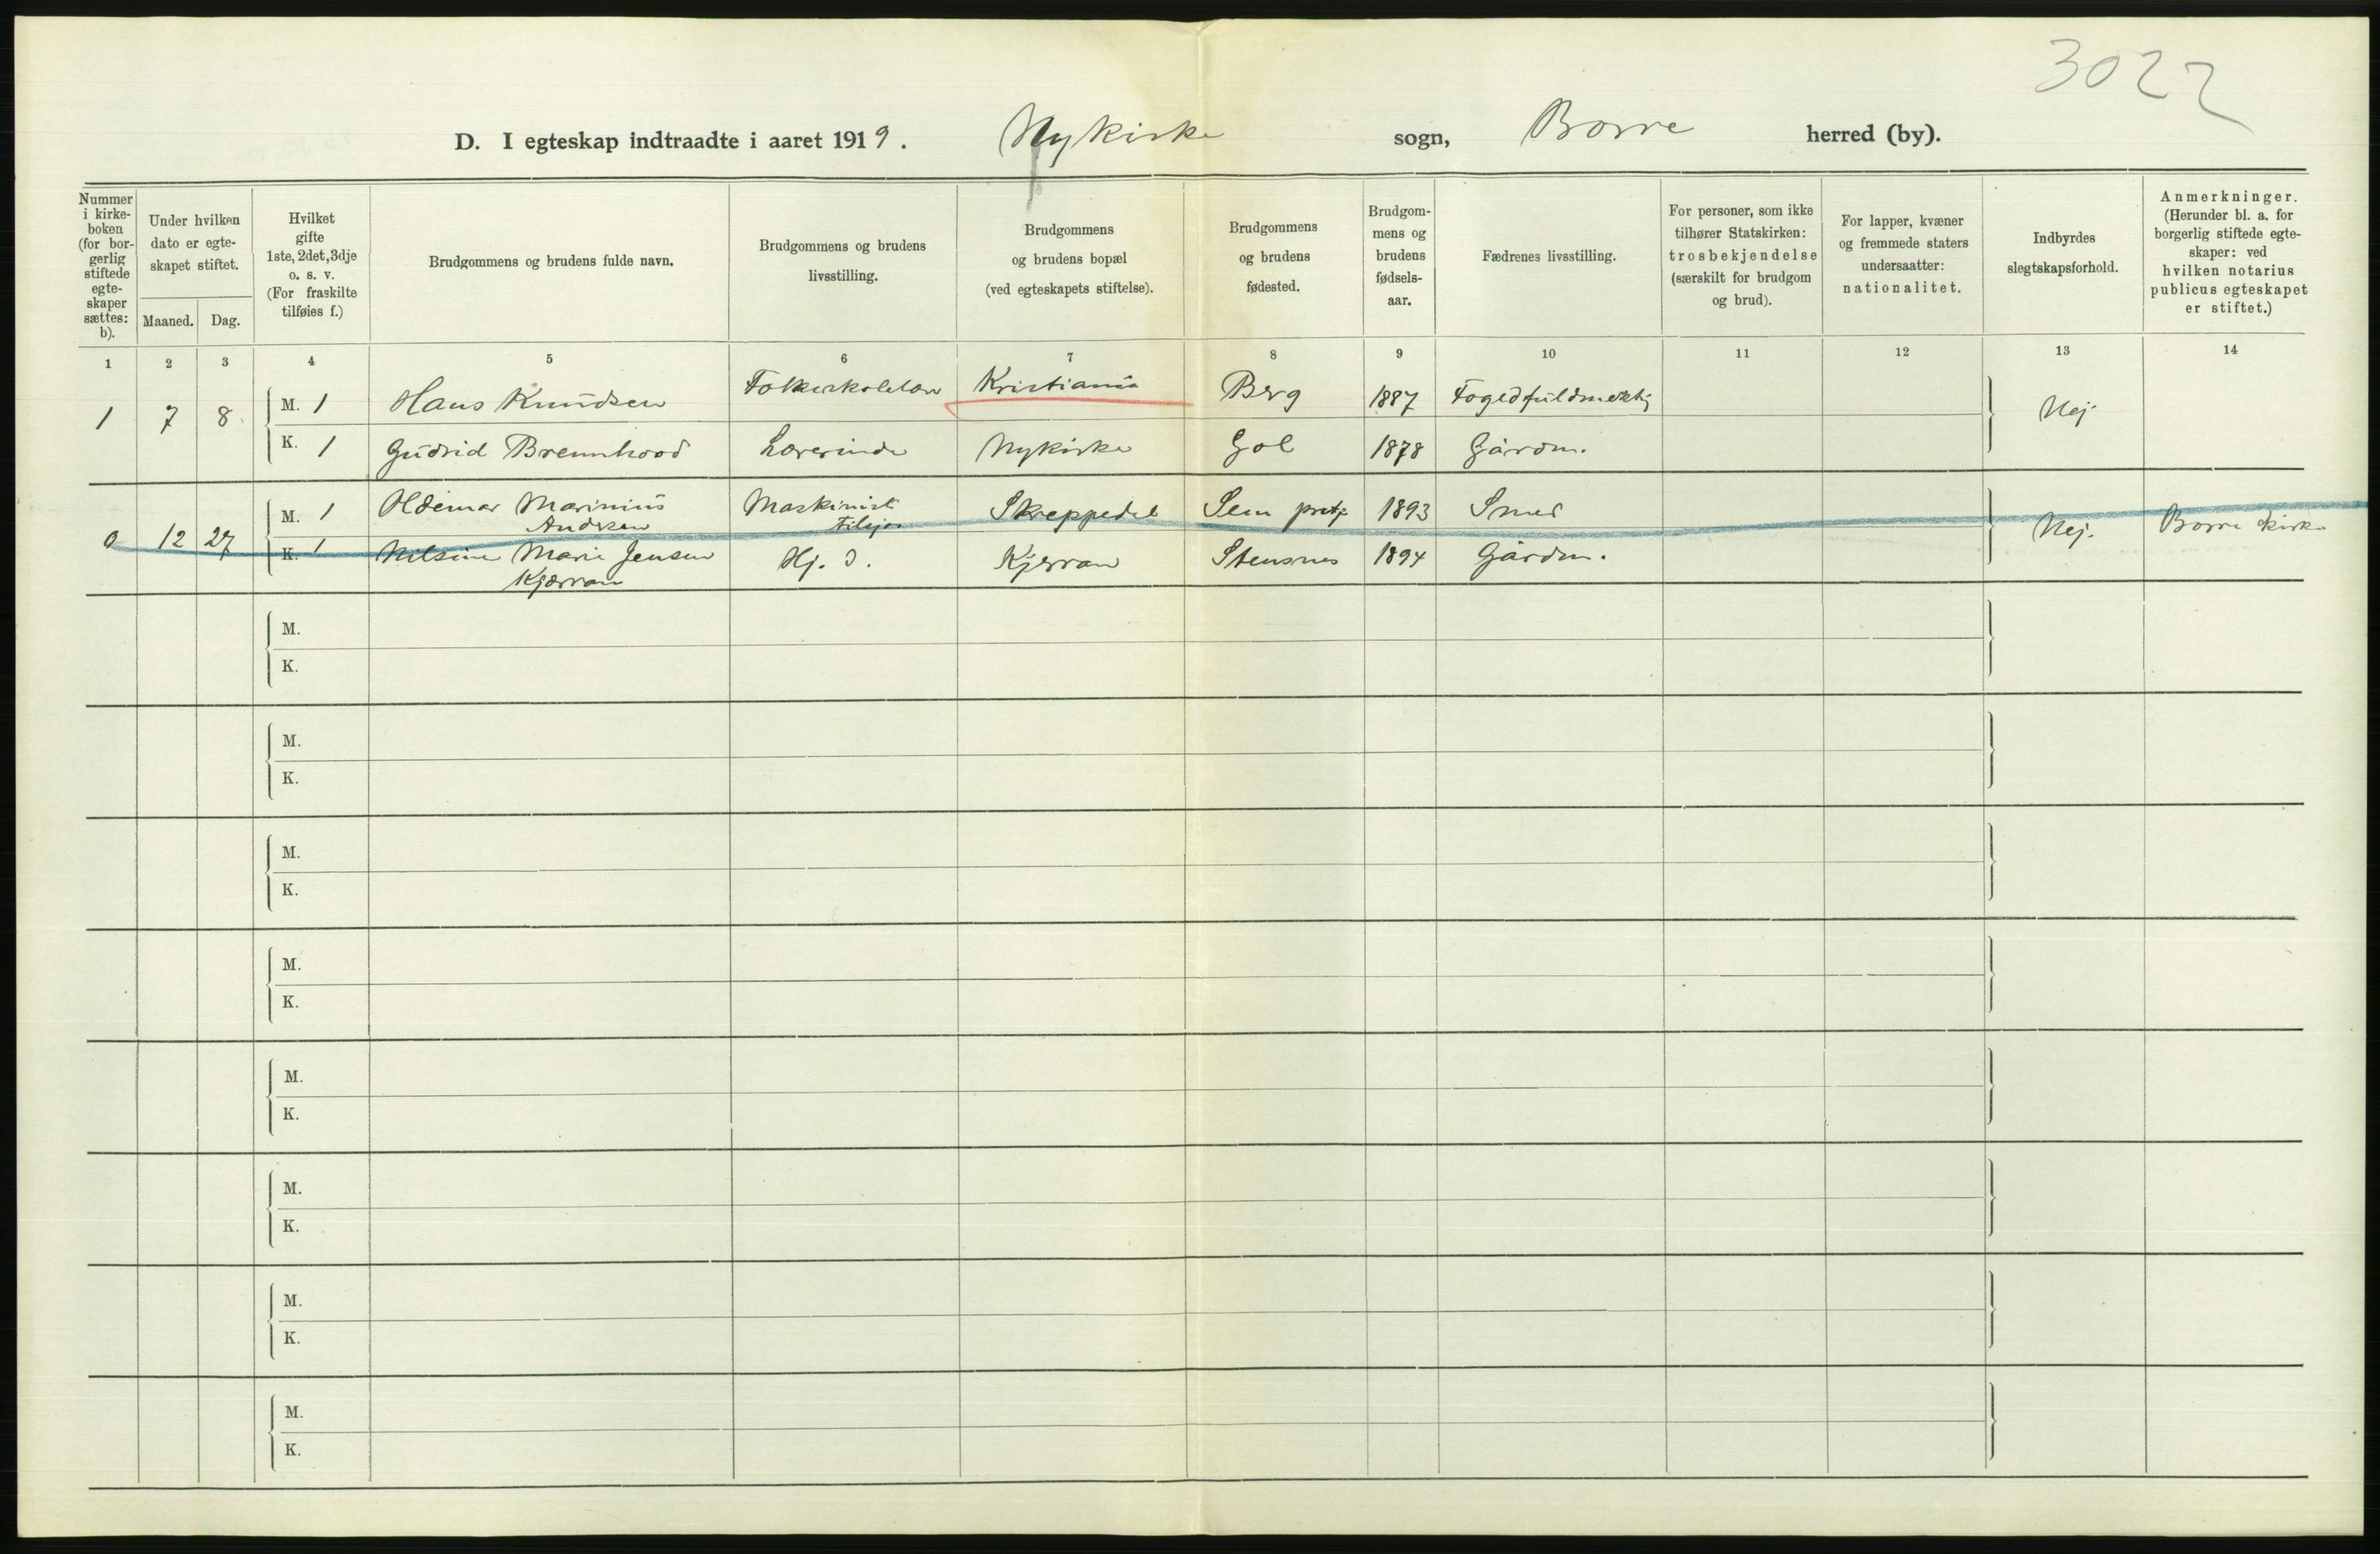 3022
D. I egteskap indtraadte i aaret 1919. Nykirke sogn, Borre herred (by).
Nummer i kirke-boken (for bor-gerlig stiftede egte-skaper sættes: b).
Under hvilken dato er egte-skapet stiftet.
Maaned. Dag.
Hvilket gifte 1ste, 2det, 3dje o. s. v. (For fraskilte tilføies f.)
Brudgommens og brudens fulde navn.
Brudgommens og brudens livsstilling.
Brudgommens og brudens bopæl (ved egteskapets stiftelse).
Brudgommens og brudens fødested.
Brudgom-mens og brudens fødsels-aar.
Fædrenes livsstilling.
For personer, som ikke tilhører Statskirken: trosbekjendelse (særskilt for brudgom og brud).
For lapper, kvæner og fremmede staters undersaatter: nationalitet.
Indbyrdes slegtskapsforhold.
Anmerkninger. (Herunder bl. a. for borgerlig stiftede egte-skaper: ved hvilken notarius publicus egteskapet er stiftet.)
1 2 3 4 5 6 7 8 9 10 11 12 13 14
1 7 8 M. 1 Hans Knudsen Kristiania Berg 1887 Fogedfuldmektig Nej
K. 1 Gudrid Brennhovd Lærerinde Nykirke Gol 1878 Gårdm.
0 12 27 M. 1 Oldemar Marinius Maskinist Skreppedal Sem prstj 1893 Smed Nej. Borre kirke
Andersen
K. 1 Nilsine Marie Jensen Hj. D. Kjærran Stensnes 1894 Gårdm.
Kjærran
M.
K.
M.
K.
M.
K.
M.
K.
M.
K.
M.
K.
M.
K.
M.
K.